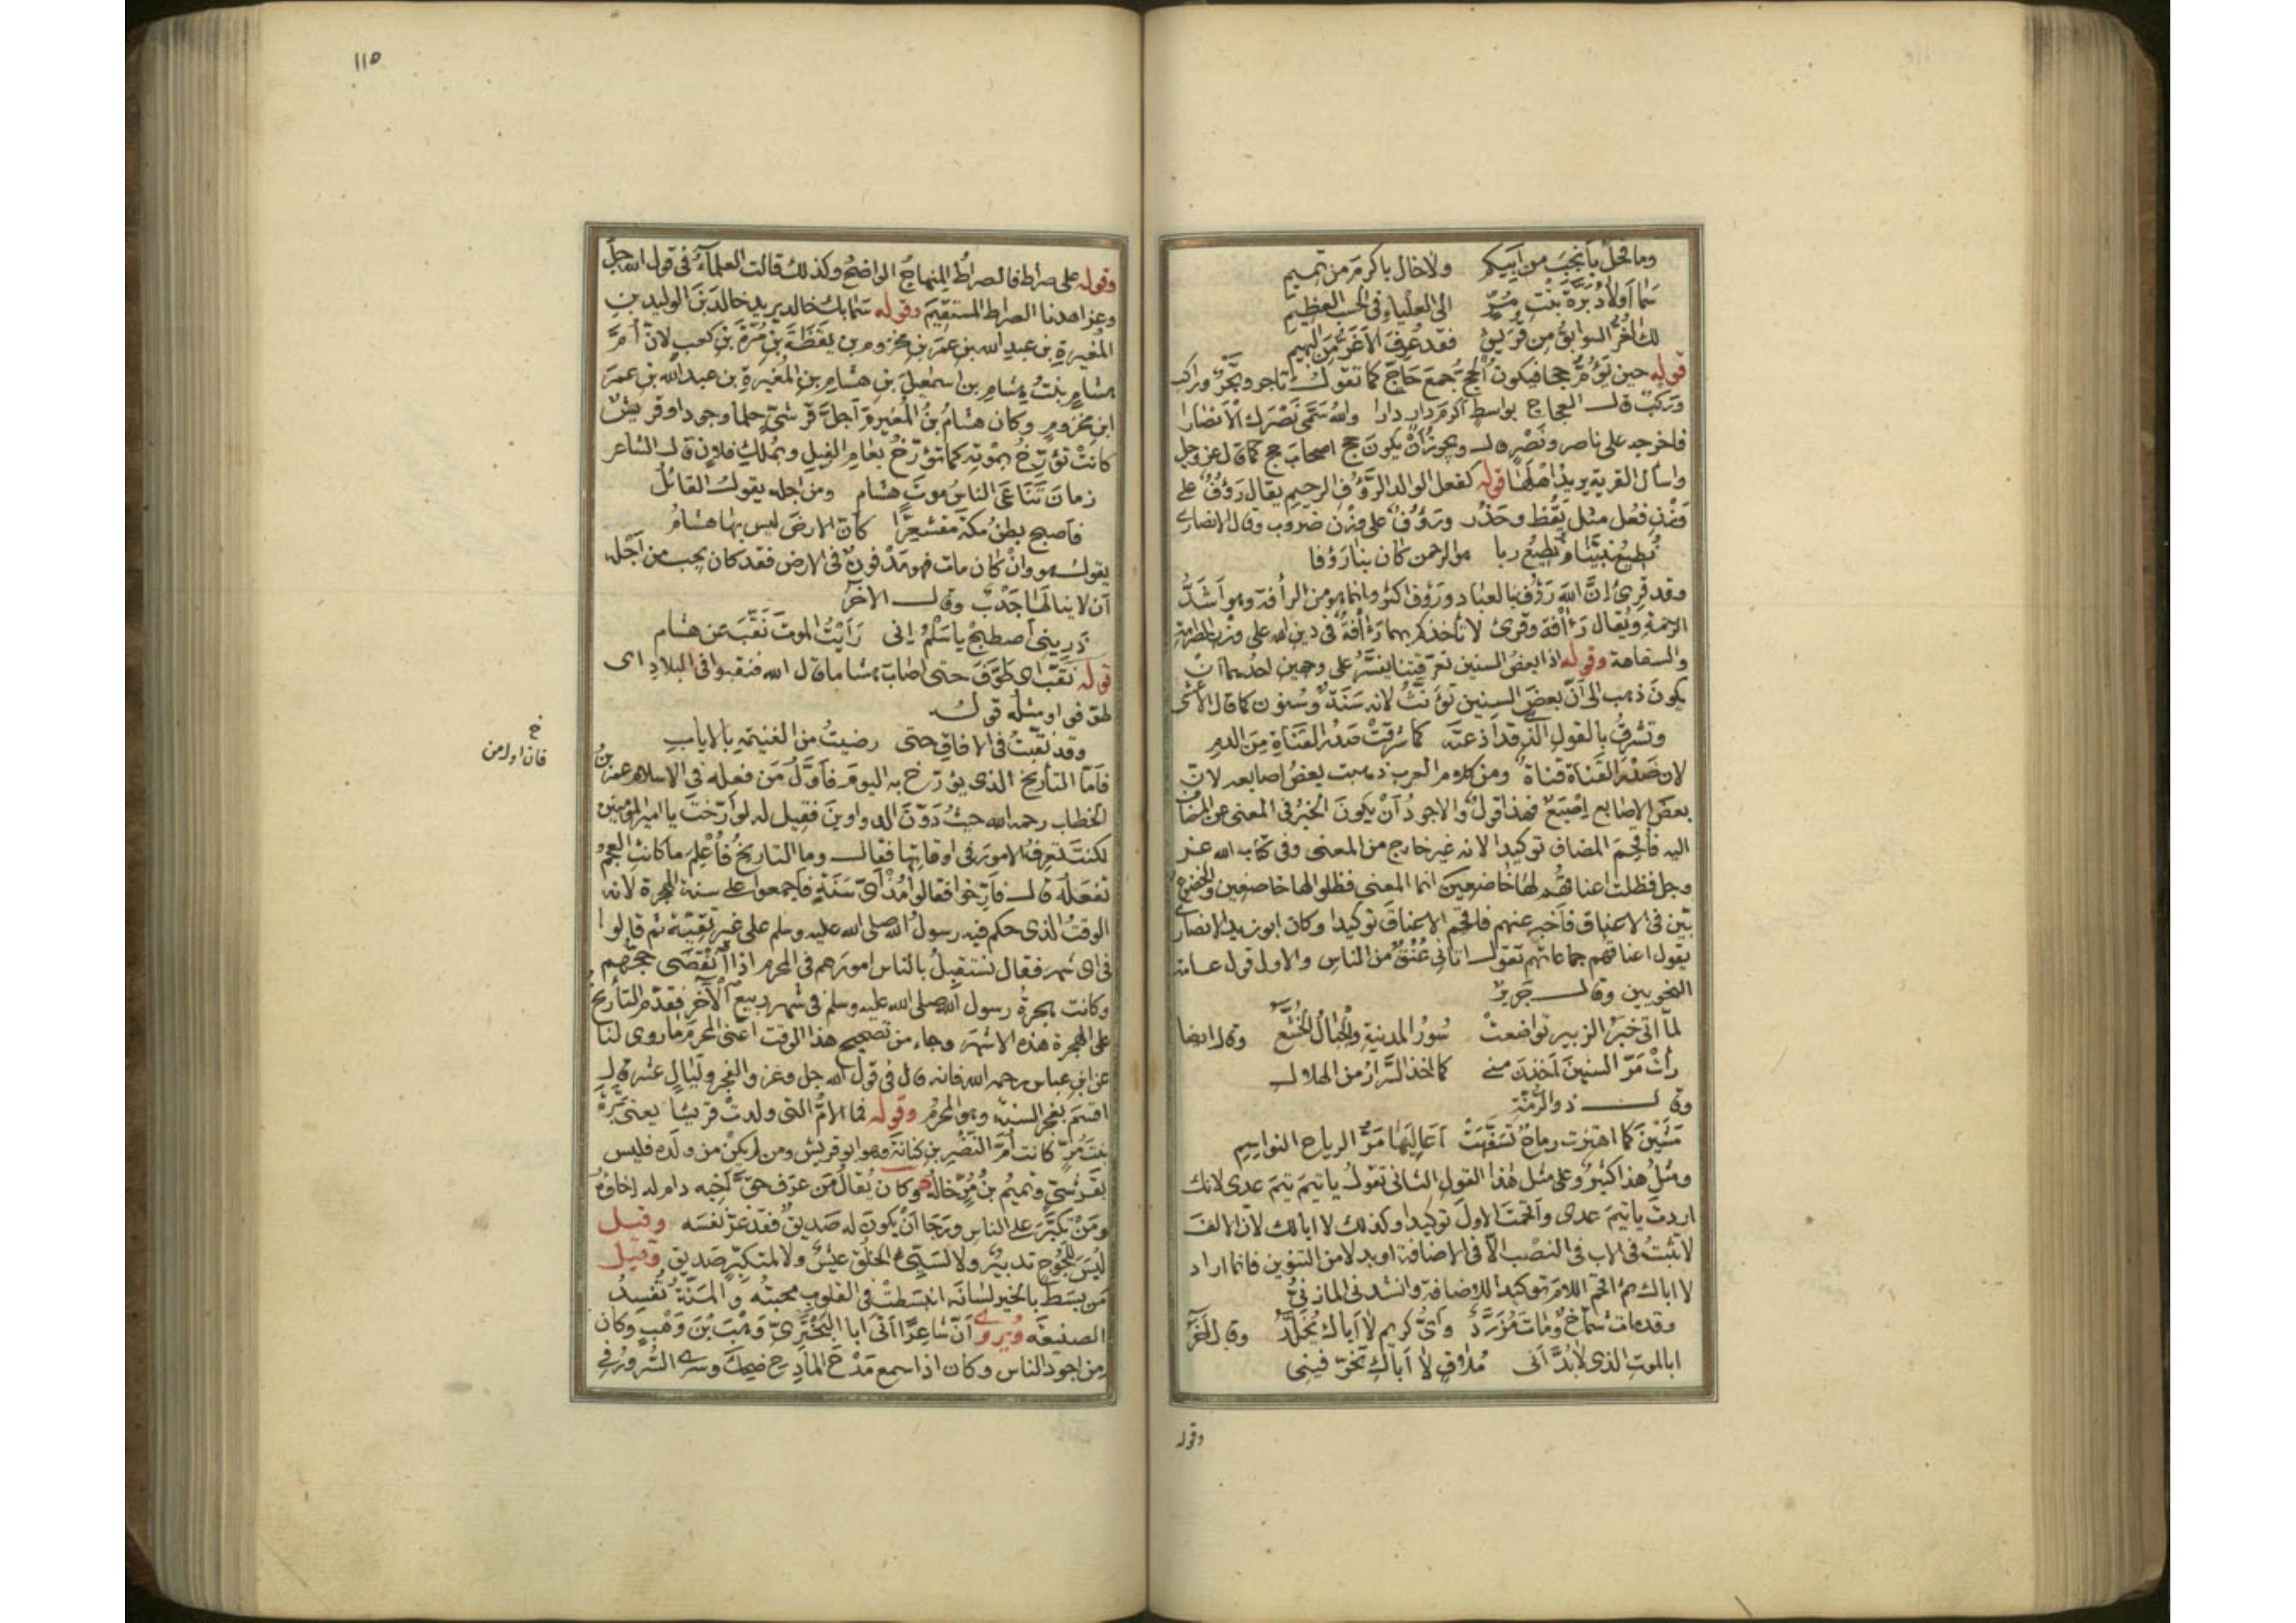 وما فحل بأنجب من أبيكم ولا خال بأكرم من تميم
سما أولاد برة بنت مر الى العلياء في الحسب العظيم
لك الغر السوابق من قريش فقد عرف الاغر من البهيم
قوله حين تؤم حجا فيكون الحج جمع حاج كما تقول تاجر وتجر وراكب
وركب قال العجاج بواسط أكرم دار دارا والله سمى نصرك الأنصارا
فاخرجه على ناصر ونصر قال ويجوز أن يكون حج اصحاب حج كما قال عز وجل
واسأل القرية يريد أهلها قوله كفعل الوالد الرؤف الرحيم يقال رؤف على
وزن فعل مثل يقظ وحذر ورؤوف على وزن ضروب وقال الانصارى
نطيع نبينا ونطيع ربا هو الرحمن كان بنا رؤوفا
وقد قرئ إن الله رؤف بالعباد ورؤوف اكثر وانما هو من الرأفة وهو أشد
الرحمة ويقال رأفة وقرئ لا تأخذكم بهما رأفة في دين الله على وزن الصرامة
والسفاهة وقوله اذا بعض السنين تعرقتنا يفسر على وجهين احدهما أن
يكون ذهب الى أن بعض السنين تؤنث لانه سنة وسنون كما قال الأعشى
وتشرق بالقول الذي قد أذعته كما شرقت صدر القناة من الدم
لان صدر القناة قناة ومن كلام العرب ذهبت بعض اصابعه لان
بعض الاصابع إصبع فهذا قول والاجود أن يكون الخبر في المعنى عن المضاف
اليه فأقحم المضاف توكيدا لانه غير خارج من المعنى وفي كتاب الله عز
وجل فظلت اعناقهم لها خاضعين انما المعنى فظلوا لها خاضعين والخضوع
بين في الاعناق فأخبر عنهم فاقحم الاعناق توكيدا وكان ابو زيد الانصارى
يقول اعناقهم جماعاتهم تقول اتاني عنق من الناس والاول قول عامة
النحويين وقال جرير
لما أتى خبر الزبير تواضعت سور المدينة والجبال الخشع وقال ايضا
رأت مر السنين أخذن مني كما اخذ السرار من الهلال
وقال ذو الرمة
مشين كما اهتزت رماح تسفهت أعاليها مر الرياح النواسم
ومثل هذا كثير وعلى مثل هذا القول الثاني تقول يا تيم تيم عدى لانك
اردت يا تيم عدى وأقحمت الاول توكيدا وكذلك لا ابا لك لان الالف
لا تثبت في الاب في النصب الا في الاضافة او بدلا من التنوين فانما اراد
لا اباك ثم اقحم اللام توكيدا للاضافة وانشدني المازني
وقد مات شماخ ومات مزرد وأي كريم لا أباك يخلد وقال آخر
ابالموت الذى لا بد أنى ملاق لا أباك تخوفيني
وقوله
١١٥
وقوله على صراط فالصراط المنهاج الواضح وكذلك قالت العلماء في قول الله جل
وعز اهدنا الصراط المستقيم وقوله سما بك خالد يريد خالد بن الوليد بن
المغيرة بن عبد الله بن عمر بن مخزوم بن يقظة بن مرة بن كعب لان أم
هشام بنت هشام بن اسمعيل بن هشام بن المغيرة بن عبد الله بن عمر
ابن مخزوم وكان هشام بن المغيرة أجل قرشي حلما وجودا وقريش
كانت تؤرخ بموته كما تؤرخ بعام الفيل وبملك فلان قال الشاعر
زمان تناعى الناس موت هشام ومن اجله يقول القائل
فأصبح بطن مكة مقشعرا كأن الارض ليس بها هشام
يقول هو وان كان مات فهو مدفون في الارض فقد كان يجب من أجله
أن لا ينالها جدب وقال الآخر
ذريني أصطبح يا سلم إنى رأيت الموت نقب عن هشام
قوله نقب اى طوف حتى اصاب هشاما قال الله فنقبوا في البلاد اى
طوفوا ومثله قول
وقد نقبت في الافاق حتى رضيت من الغنيمة بالاياب
فأما التأريخ الذى يؤرخ به اليوم فأول من فعله في الاسلام عمر بن
الخطاب رحمه الله حيث دون الدواوين فقيل له لو أرخت يا امير المؤمنين
لكنت تعرف الامور في اوقاتها فقال وما التاريخ فأعلم ما كانت العجم
تفعله قال فأرخوا فقالوا مذ أى سنة فاجمعوا على سنة الهجرة لانه
الوقت الذى حكم فيه رسول الله صلى الله عليه وسلم على غير تقية ثم قالوا
في اى شهر فقال نستقبل بالناس امورهم في المحرم اذا انقضى حجهم
وكانت هجرة رسول الله صلى الله عليه وسلم في شهر ربيع الآخر فقدم التأريخ
على الهجرة هذه الاشهر وجاء من تصحيح هذا الوقت أعنى المحرم ما روى لنا
عن ابن عباس رحمه الله فانه قال في قول الله جل وعز والفجر وليال عشر قال
اقسم بفجر السنة وهو المحرم وقوله فما الام التى ولدت قريشا يعنى برة
بنت مر كانت أم النضر بن كنانة وهو ابو قريش ومن لم يكن من ولده فليس
بقرشي وتميم بن مر خاله وكان يقال من عرف حق أخيه دام له إخاؤه
ومن تكبر على الناس ورجا أن يكون له صديق فقد غر نفسه وقيل
ليس للجوج تدبير ولا لسيئ الخلق عيش ولا لمتكبر صديق وقيل
من بسط بالخير لسانه انبسطت في القلوب محبته والمنة تفسد
الصنيعة ويروى أن شاعرا أتى ابا البختري وهب بن وهب وكان
من اجود الناس وكان اذا سمع مدح المادح ضحك وسرى السرور في
خ
فان اول من